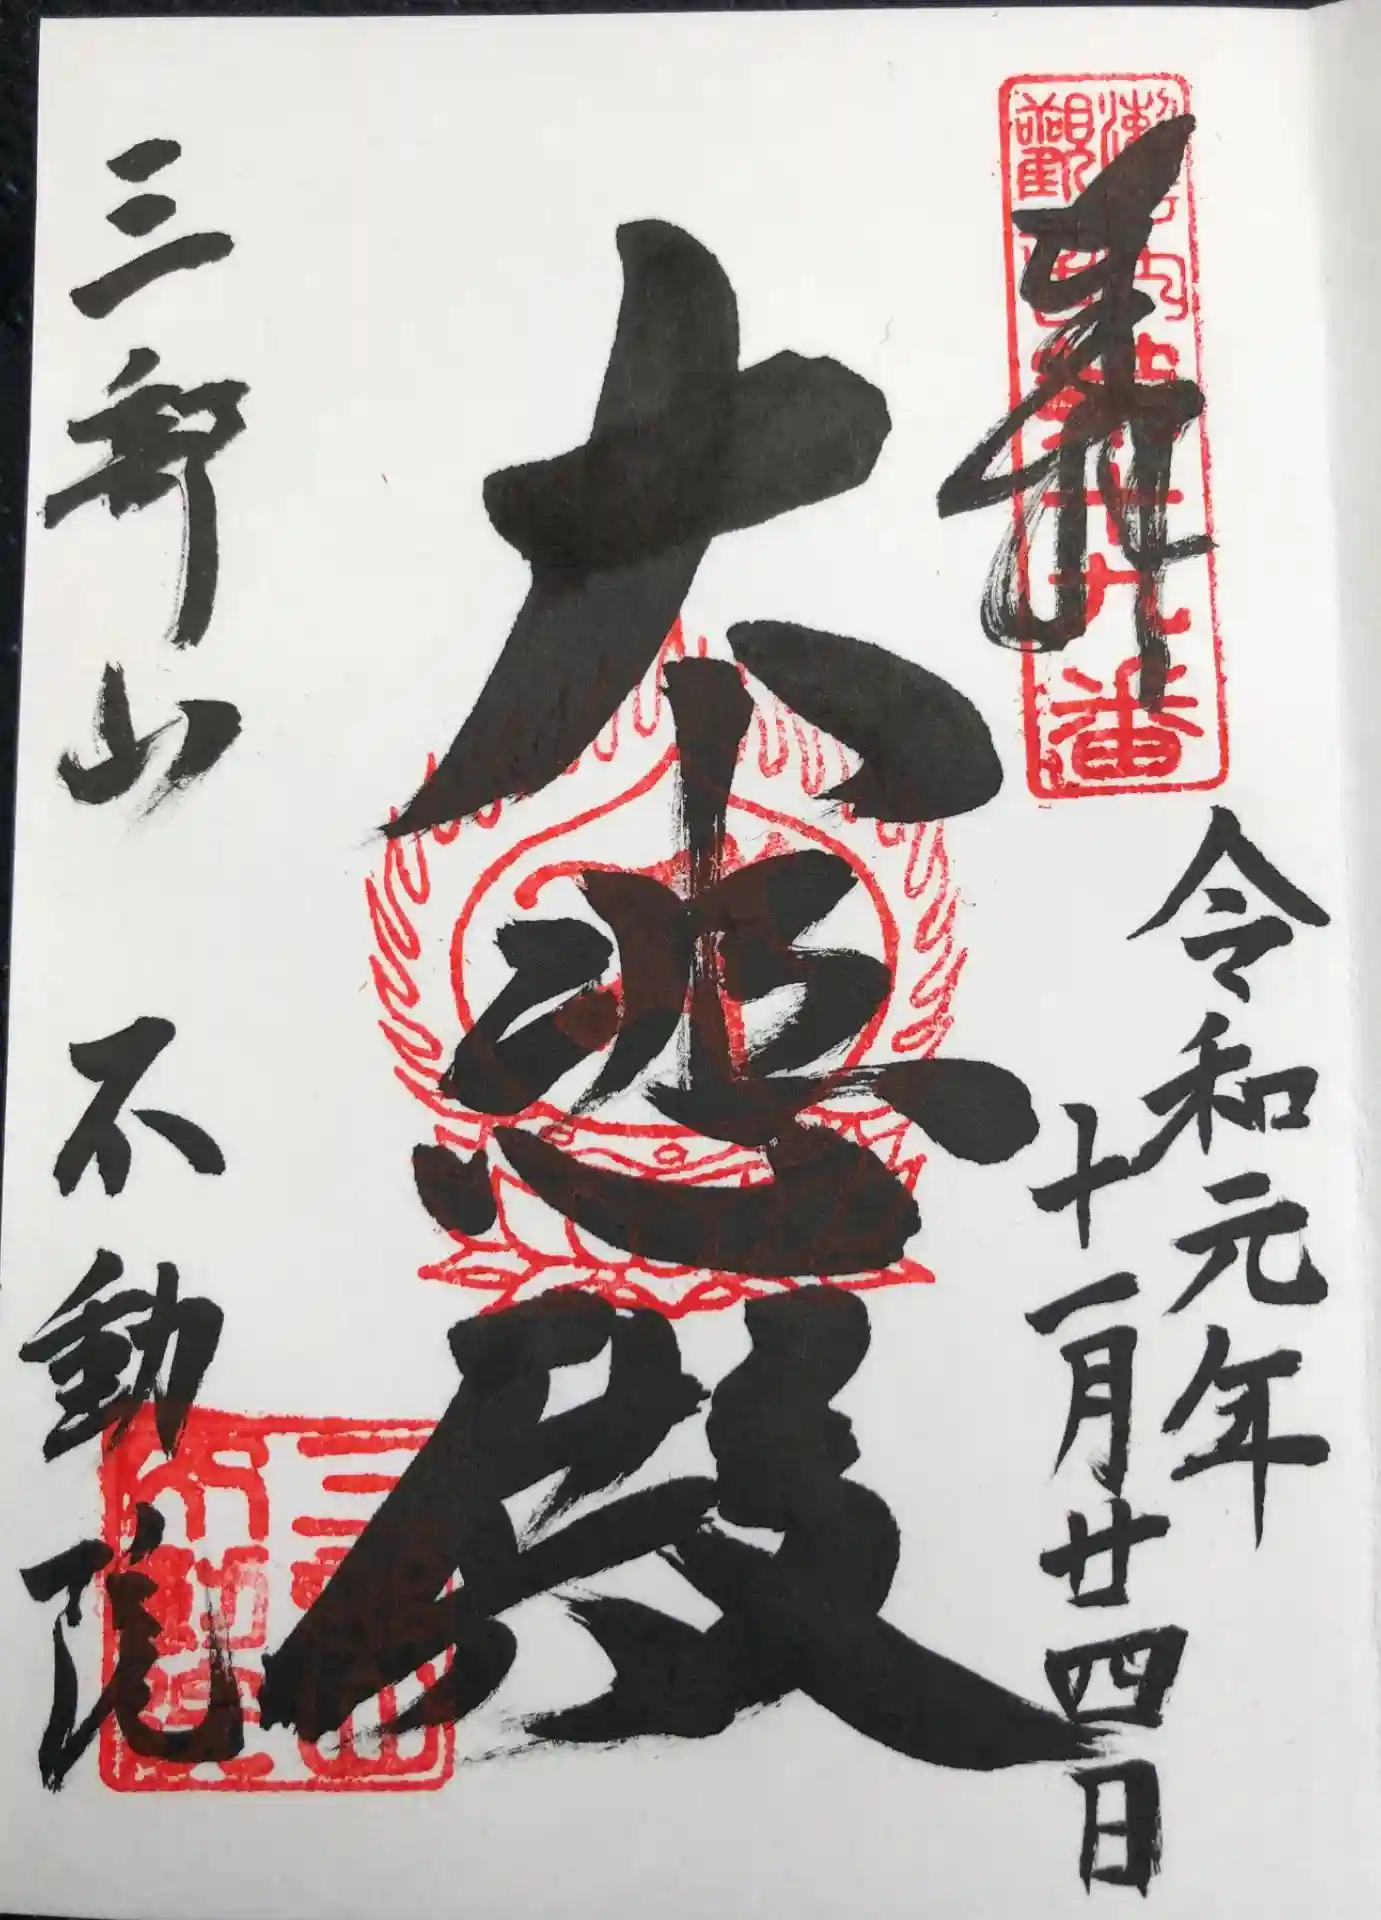 奉拝
令和元年
十一月廿四日
大悲殿
三部山 不動院
番